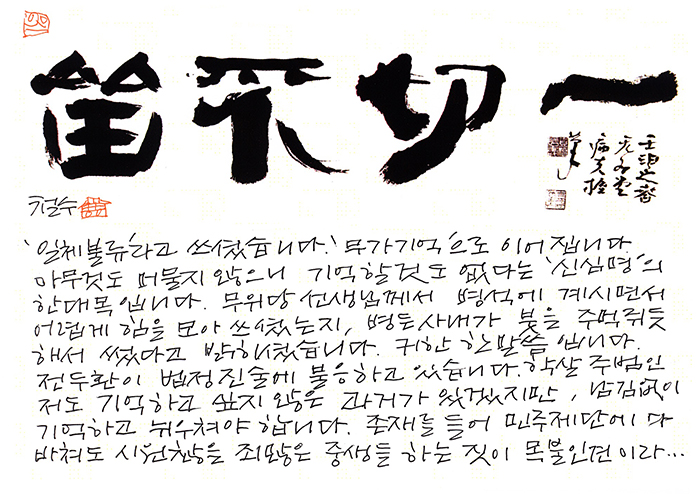 一切不留
壬申之春
철수
'일체불류'라고 쓰셨습니다. '무가기억'으로 이어집니다.
아무것도 머물지 않으니 기억할것도 없다는 '신심명'의
한대목입니다. 무위당 선생님께서 병석에 계시면서
어렵게 힘을 모아 쓰셨는지, 병든사내가 붓을 주먹쥐듯
해서 썼다고 밝히셨습니다. 귀한 한말씀입니다.
전두환이 법정진술에 불응하고 있습니다. 학살 주범인
저도 기억하고 싶지 않은 과거가 있겠지만, 남김없이
기억하고 뉘우쳐야 합니다. 존재를 들어 민주제단에 다
바쳐도 시원찮을 죄많은 중생들 하는 짓이 목불인견이라...